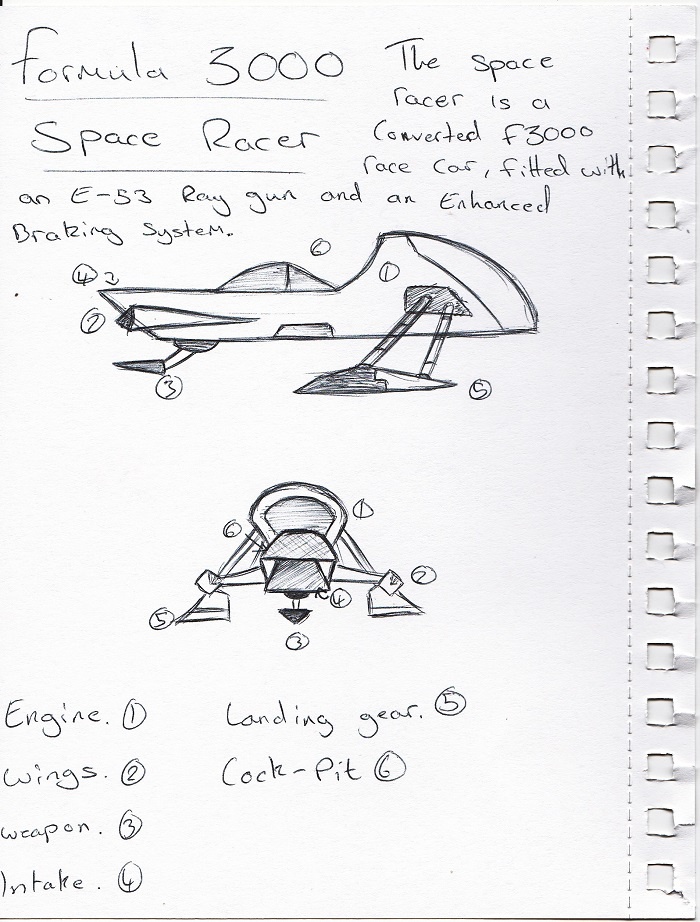 Formula 3000
Space Racer
The space
racer is a
Converted F3000
race car, fitted with
an E-53 Ray gun and an Enhanced
Braking System.
4
6
1
2
3
5
1
6
2
4
5
3
Engine. 1
Landing gear. 5
Wings. 2
Cock-Pit 6
weapon. 3
Intake. 4